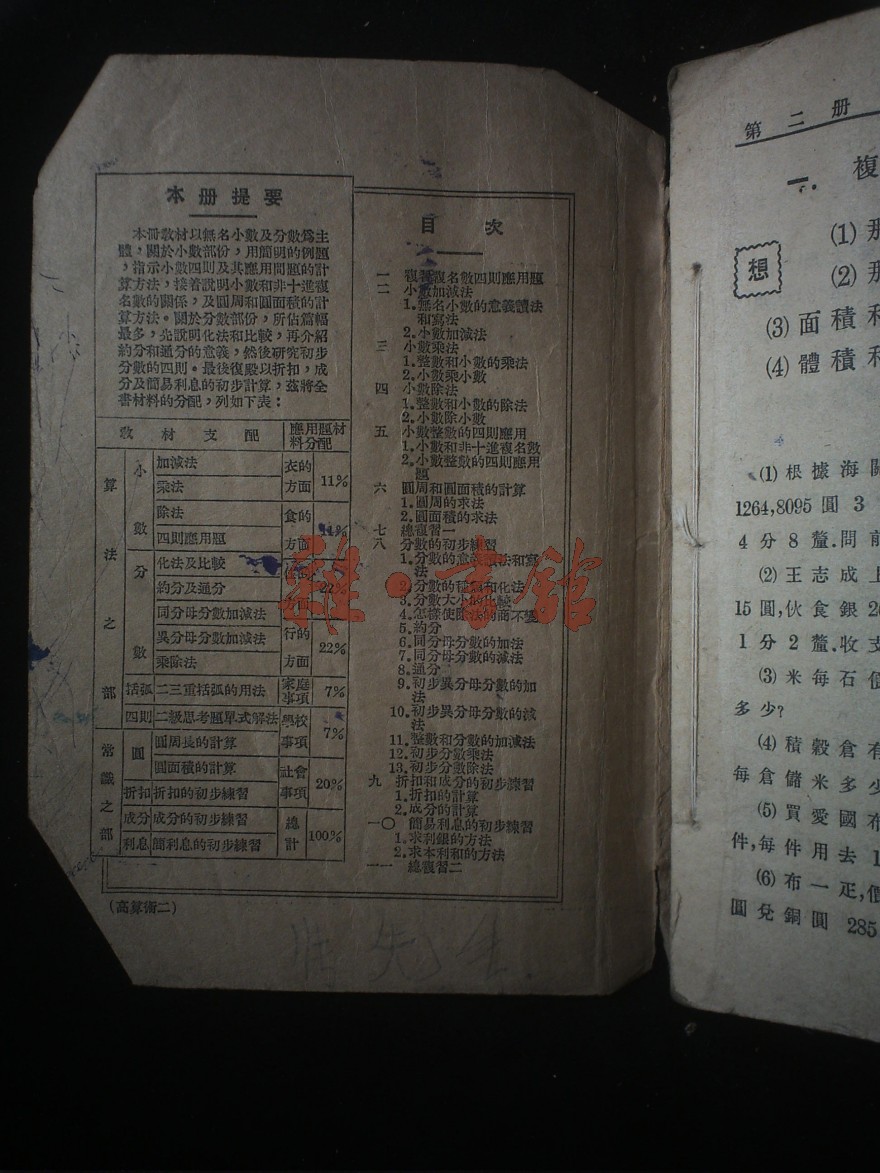 本册提要
本冊教材以無名小數及分數爲主
體，關於小數部份，用簡明的例題
，指示小數四則及其應用問題的計
算方法，接着說明小數和非十進複
名數的關係，及圓周和圓面積的計
算方法。關於分數部份，所佔篇幅
最多，先說明化法和比較，再介紹
約分和通分的意義，然後研究初步
分數的四則。最後復殿以折扣，成
分及簡易利息的初步計算，茲將全
書材料的分配，列如下表：
教材支配 應用題材料分配
算法之部
小數
加減法
乘法
衣的方面 11%
除法
四則應用題
食的方面
分數
化法及比較
約分及通分
方面 22%
同分母分數加減法
異分母分數加減法
乘除法
行的方面 22%
括弧 二三重括弧的用法 家庭事項 7%
四則 二級思考題單式解法 學校事項 7%
常識之部
圓 圓周長的計算
圓面積的計算 社會事項 20%
折扣 折扣的初步練習
成分 成分的初步練習 總計 100%
利息 簡利息的初步練習
(高算術二)
目次
一 複名數四則應用題
二 小數加減法
1. 無名小數的意義讀法
和寫法
2. 小數加減法
三 小數乘法
1. 整數和小數的乘法
2. 小數乘小數
四 小數除法
1. 整數和小數的除法
2. 小數除小數
五 小數整數的四則應用
1. 小數和非十進複名數
2. 小數整數的四則應用
題
六 圓周和圓面積的計算
1. 圓周的求法
2. 圓面積的求法
七 總複習一
八 分數的初步練習
1. 分數的意義讀法和寫
法
2. 分數的種類和化法
3. 分數大小的比較
4. 怎樣使除法的商不變
5. 約分
6. 同分母分數的加法
7. 同分母分數的減法
8. 通分
9. 初步異分母分數的加
法
10. 初步異分母分數的減
法
11. 整數和分數的加減法
12. 初步分數乘法
13. 初步分數除法
九 折扣和成分的初步練習
1. 折扣的計算
2. 成分的計算
一〇 簡易利息的初步練習
1. 求利銀的方法
2. 求本利和的方法
一一 總複習二
先生
雜·書館
第二册
一. 複
想
(1) 那
(2) 那
(3) 面積和
(4) 體積和
(1) 根據海關
1264,8095 圓 3
4 分 8 釐.問前
(2) 王志成上
15 圓,伙食銀 2
1 分 2 釐.收支
(3) 米每石值
多少?
(4) 積穀倉有
每倉儲米多少
(5) 買愛國布
件,每件用去 1
(6) 布一疋,價
圓兌銅圓 285